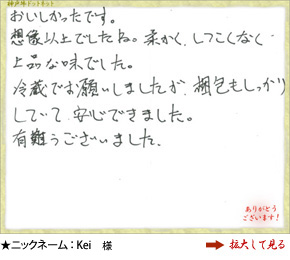 神戸牛ドットネット
おいしかったです。
想像以上でしたね。柔かく、しつこくなく
上品な味でした。
冷蔵でお願いしましたが、梱包もしっかり
していて、安心できました。
有難うございました。
ありがとう
ございます!
★ニックネーム：Kei　様
拡大して見る